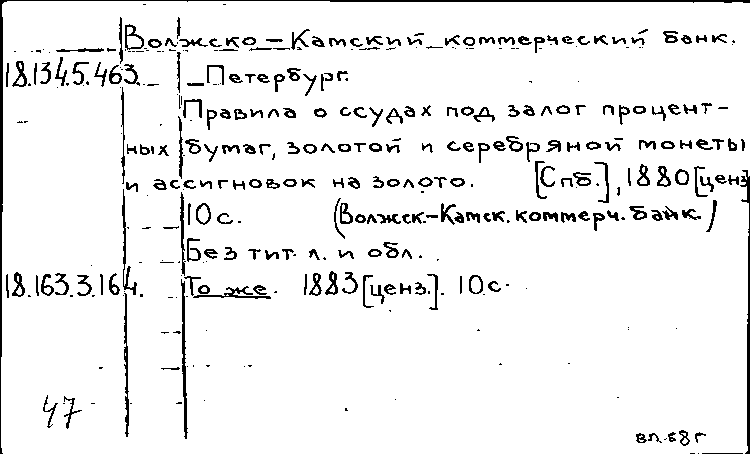 Волжско-Камский коммерческий банк.
18.134.5.463. Петербург.
Правила о ссудах под залог процент-
ных бумаг, золотой и серебряной монеты
и ассигновок на золото. [Спб.], 1880 [ценз]
10 с. (Волжск.-Камск. коммерч. банк.)
Без тит. л. и обл.
18.163.3.164. То же. 1883 [ценз.]. 10 с.
47
вл. 68 г